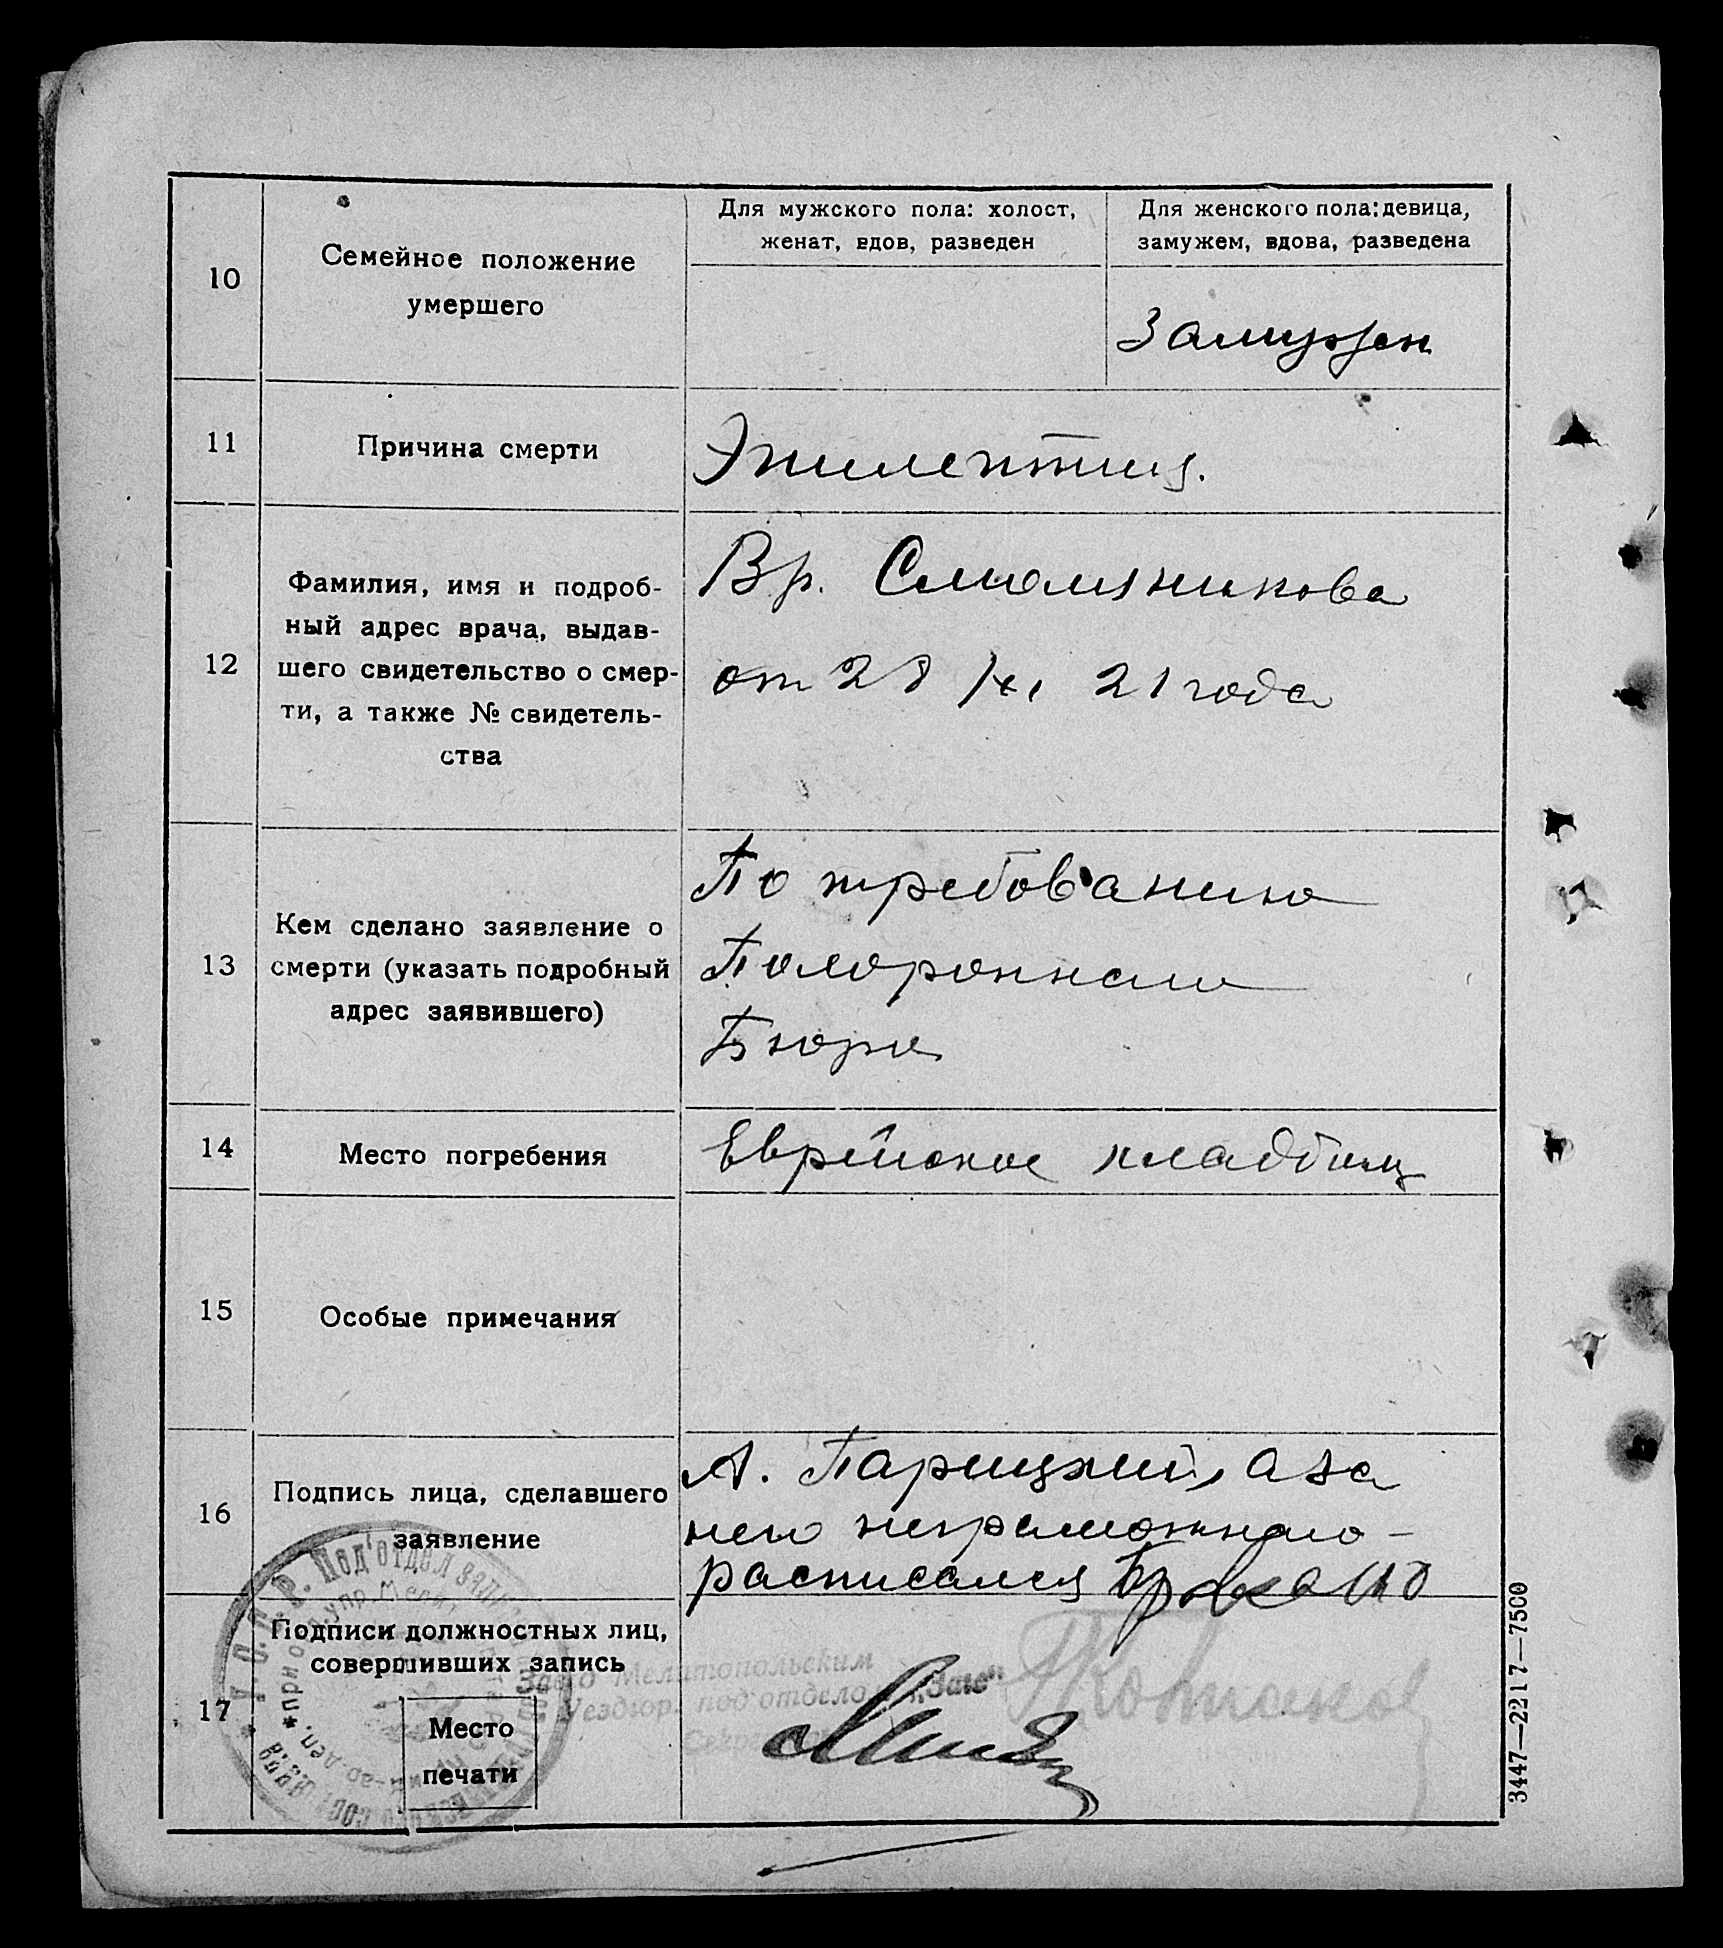 10
Семейное положение
умершего
Для мужского пола: холост,
женат, вдов, разведен
Для женского пола: девица,
замужем, вдова, разведена
Замужем
11
Причина смерти
Эпилептия.
12
Фамилия, имя и подроб-
ный адрес врача, выдав-
шего свидетельство о смер-
ти, а также № свидетель-
ства
Вр. Смолянникова
от 28 /XI 21 года
13
Кем сделано заявление о
смерти (указать подробный
адрес заявившего)
По требованию
Похоронного
Бюро
14
Место погребения
Еврейское кладбищ
15
Особые примечания
16
Подпись лица, сделавшего
заявление
А. Парицкий, а за
него неграмотного -
расписался
17
Подписи должностных лиц,
совершивших запись
Место
печати
Мелитопольским
Уездюр. под'отделом „Загс"
3447—2217—7500